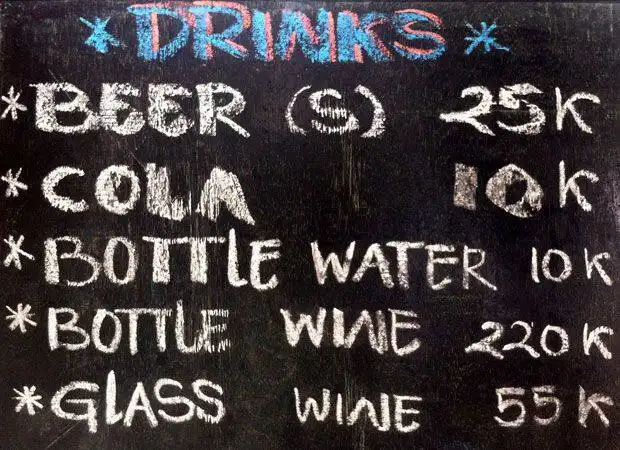 * DRINKS *
* BEER (S) 25K
* COLA 10K
* BOTTLE WATER 10K
* BOTTLE WINE 220K
* GLASS WINE 55K